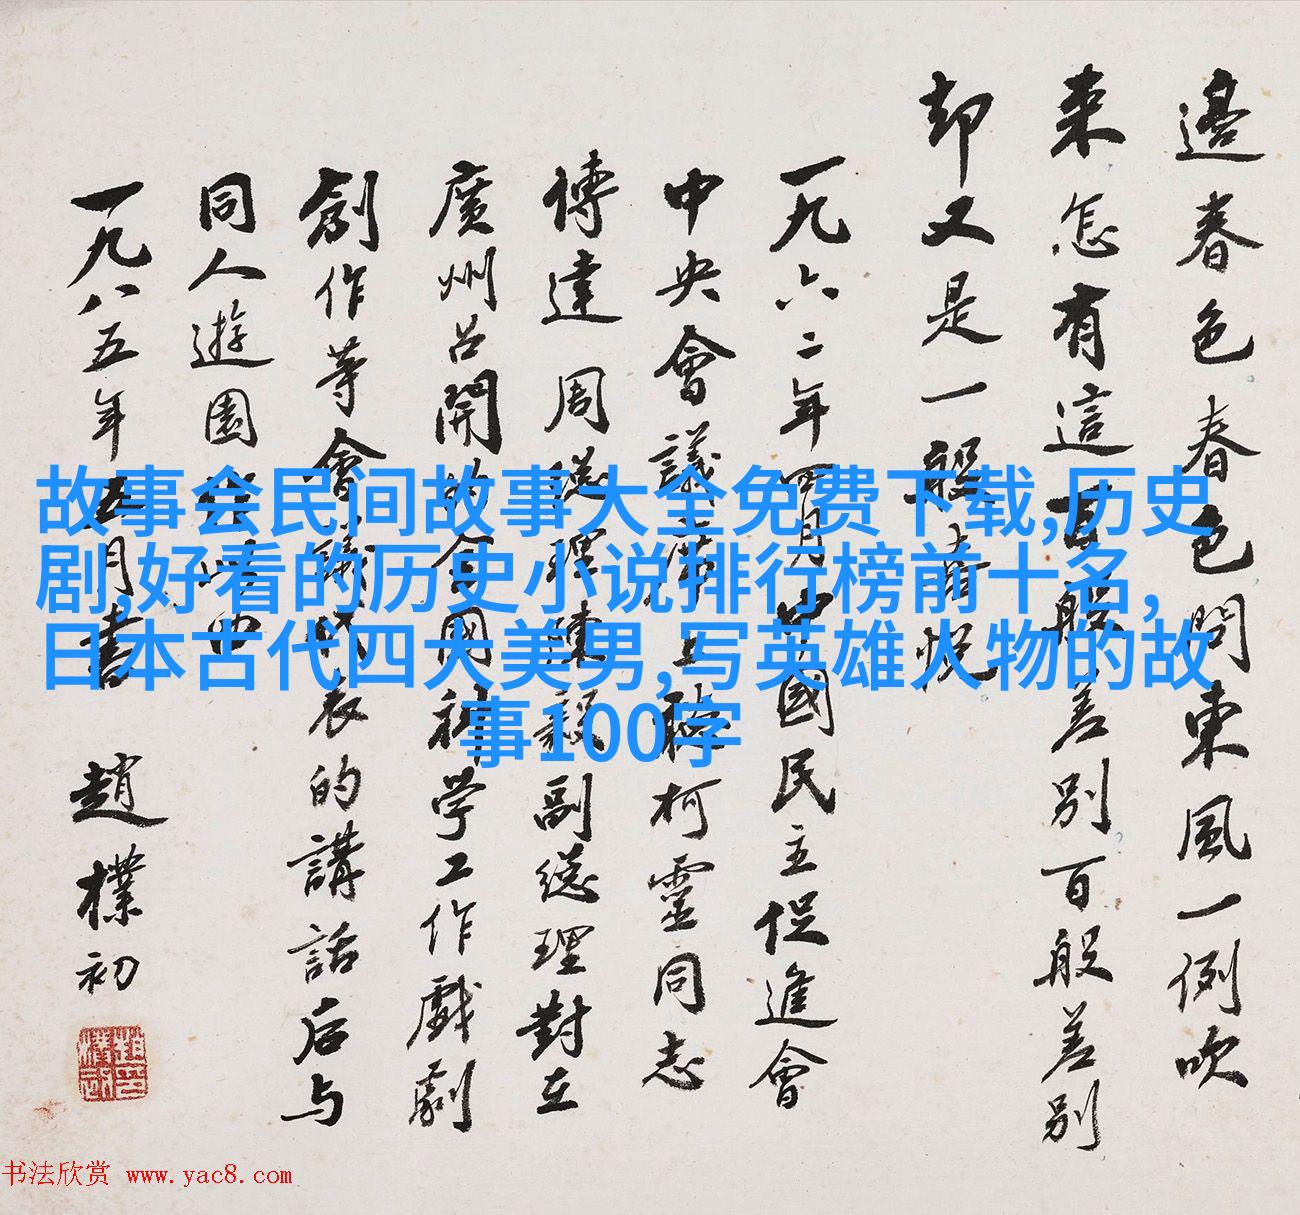 邊春色春色問東風一例吹
來怎有這百般差別百般差別
却又是一般
一九六二年四月中國民主促進會
中央會議
柯靈同志
傳達周總理陳毅副總理對在
廣州召開的全國科学工作戲劇
創作等會議代表的講話后与
同人遊園
一九八五年五月書
趙樸初
故事会民间故事大全免费下载,历史
剧,好看的历史小说排行榜前十名,
日本古代四大美男,写英雄人物的故
事100字
书法欣赏 www.yac8.com